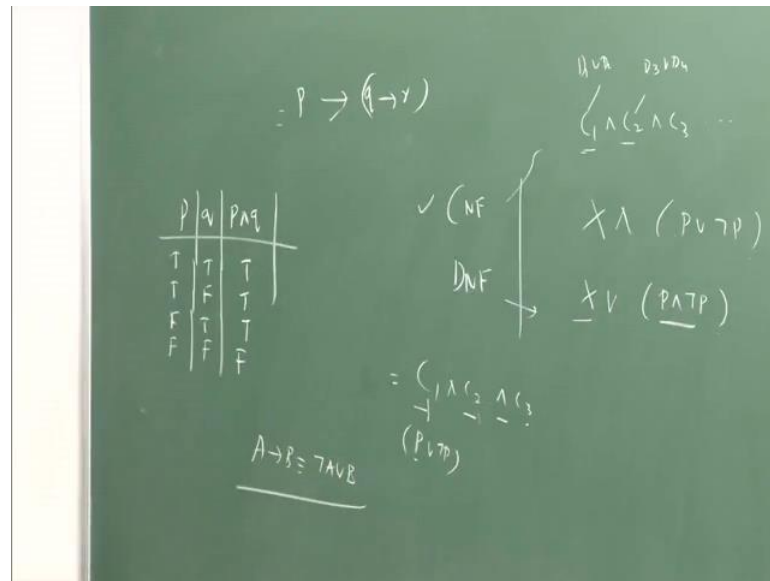 = P → (q → r)
D1 ∨ D2 D3 ∨ D4
C1 ∧ C2 ∧ C3 ..
P q P∧q
T T T
T F T
F T T
F F F
✓ CNF
DNF
X ∧ (P ∨ ¬P)
X ∨ (P ∧ ¬P)
= C1 ∧ C2 ∧ C3
(P ∨ ¬P)
A → B ≡ ¬A ∨ B